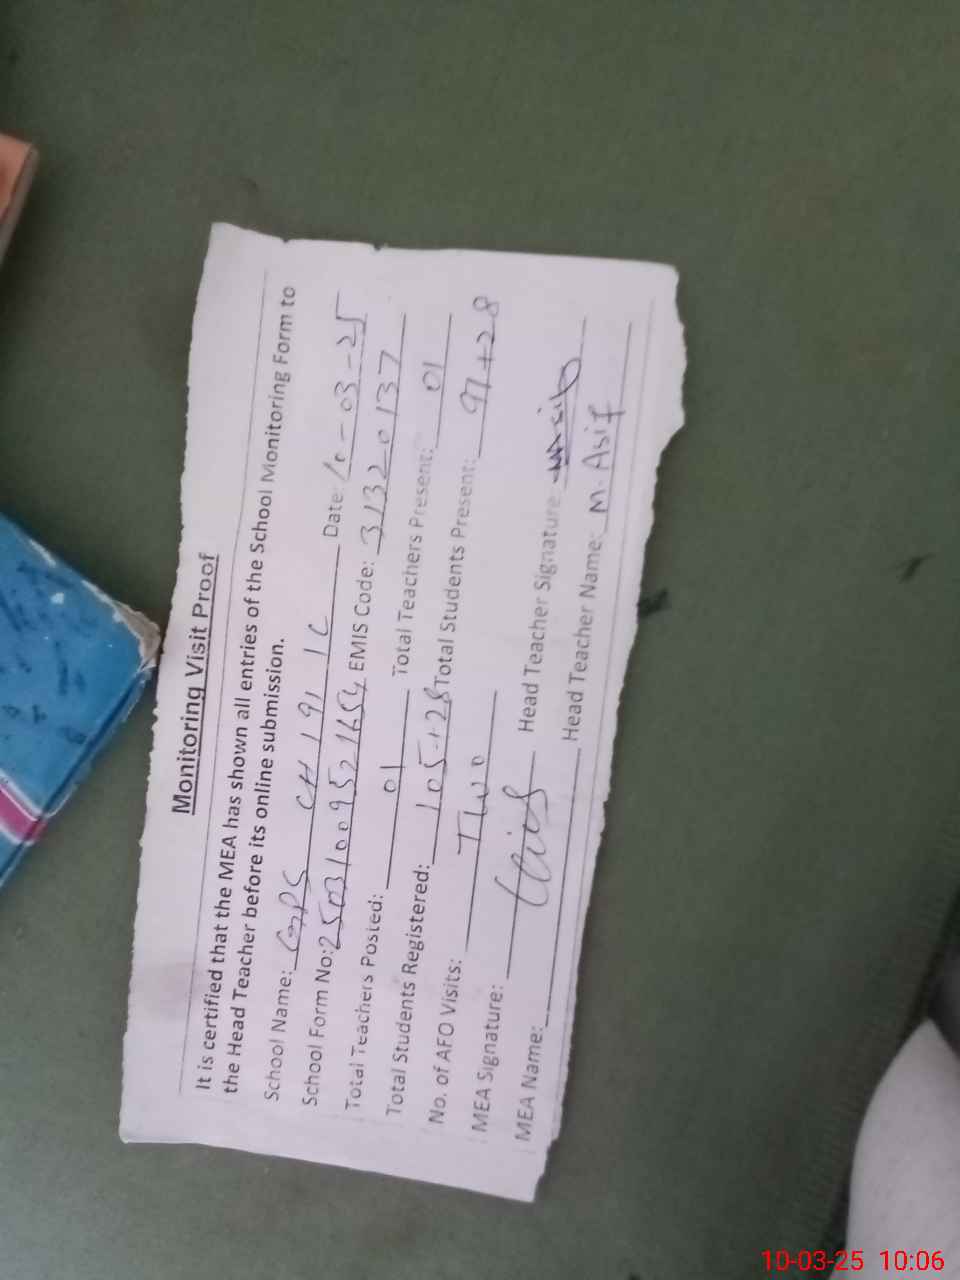 Monitoring Visit Proof
It is certified that the MEA has shown all entries of the School Monitoring Form to
the Head Teacher before its online submission.
School Name: GPS CH 191 1C Date: 10-03-25
School Form No: 25031009521654 EMIS Code: 31320137
Total Teachers Posted: 01 Total Teachers Present: 01
Total Students Registered: 105+28 Total Students Present: 97+28
No. of AFO Visits: Two
MEA Signature: Head Teacher Signature
MEA Name: Head Teacher Name: M. Asif
10-03-25 10:06